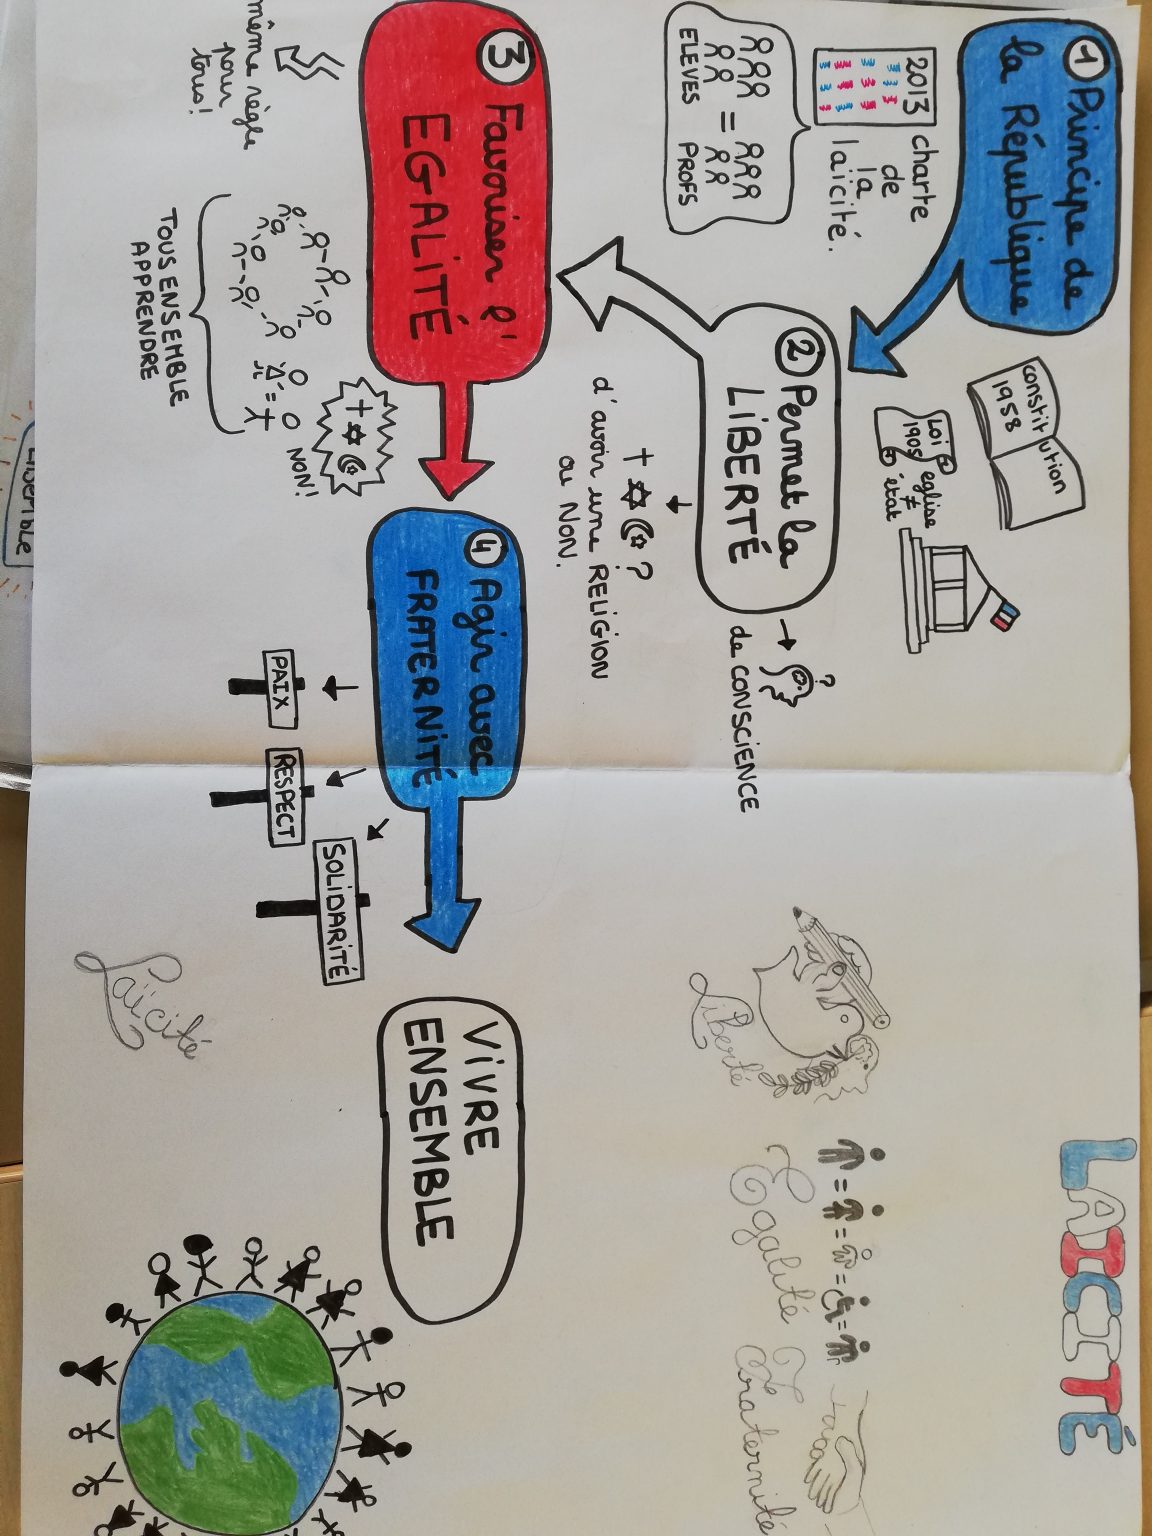 LAICITÉ
① Principe de
la République
2013 charte
de
la
laïcité.
ELEVES = PROFS
constitution
1958
Loi
1905 église
≠
état
② Permet la
LIBERTÉ
→ ?
de CONSCIENCE
?
d'avoir une RELIGION
ou NON.
③ Favoriser l'
EGALITÉ
même règle
pour
tous!
TOUS ENSEMBLE
APPRENDRE
=
NON!
④ Agir avec
FRATERNITÉ
PAIX
RESPECT
SOLIDARITÉ
VIVRE
ENSEMBLE
Liberté
= = = =
Egalité
Fraternité
Laïcité